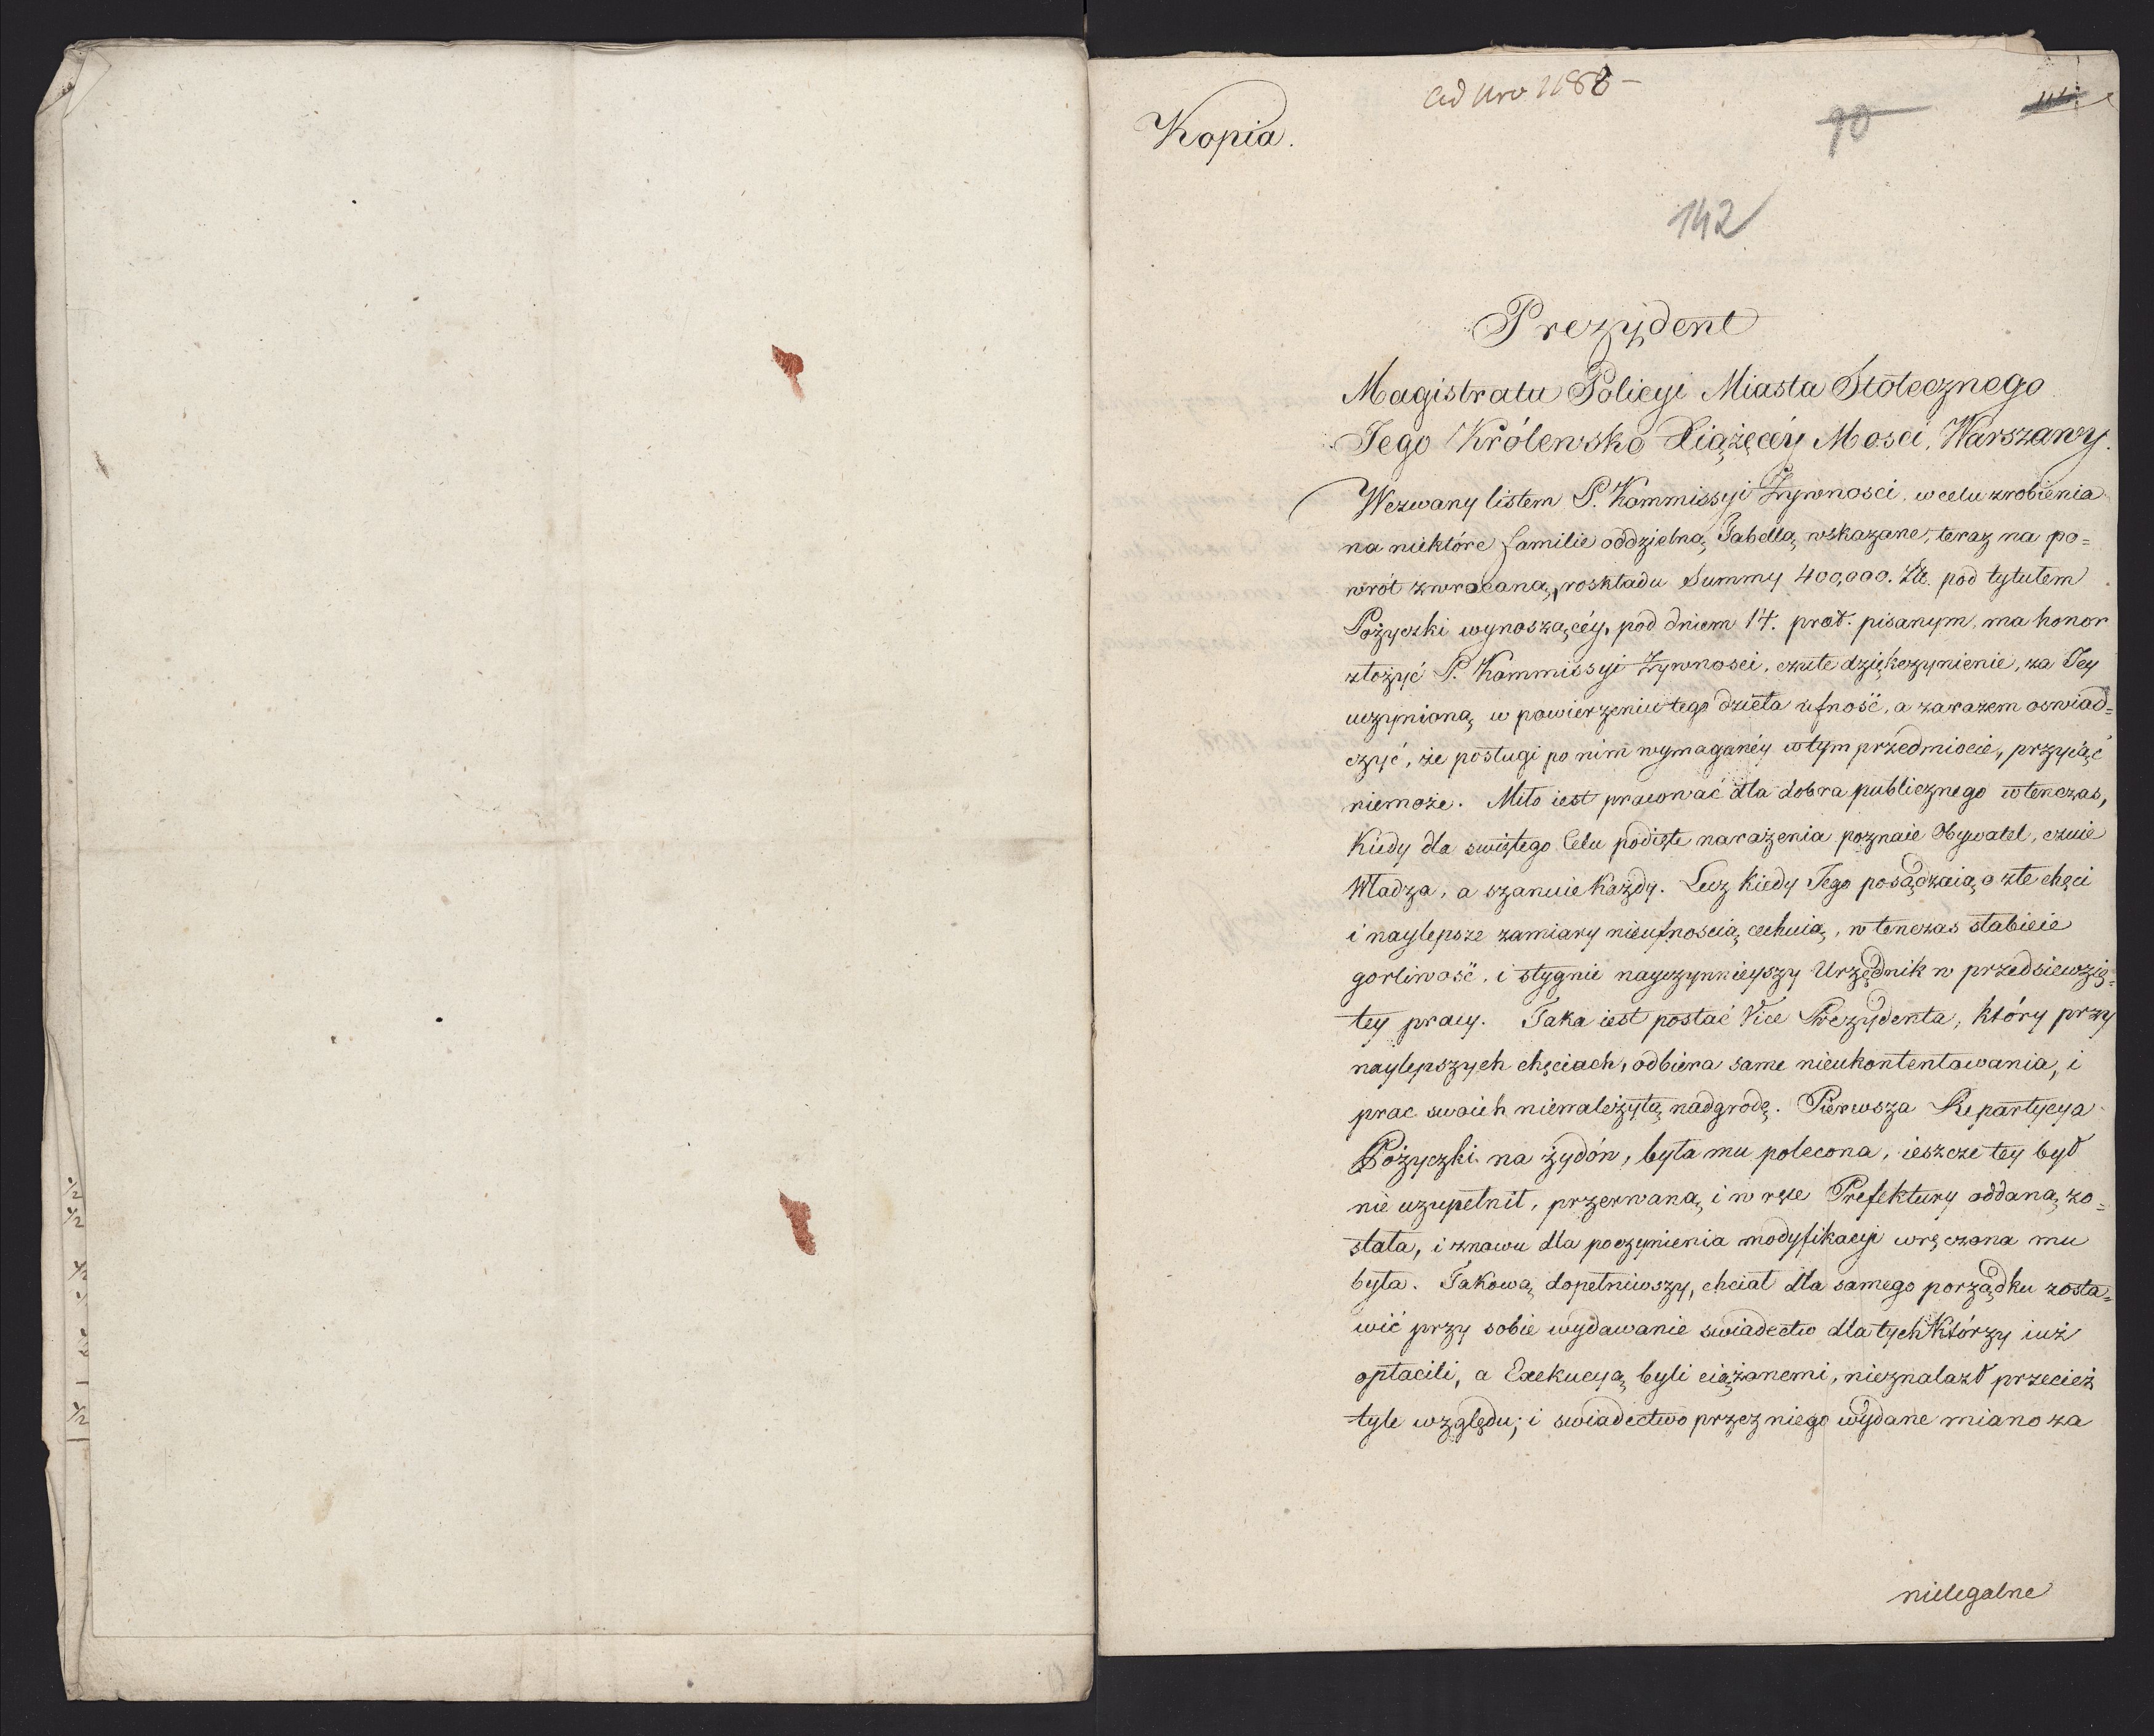 Ad Nro 1188 -
Kopia.
90
142
Prezydent
Magistratu Policyi Miasta Stołecznego
Jego Królewsko Xiążęcéy Mosci, Warszawy.
Wezwany listem P. Kommissyi Zywnosci, w celu zrobienia
na niektóre familie oddzielną Tabellą wskazane, teraz na po=
wrót zwracaną, roskładu Summy 400,000. Złł. pod tytułem
Pożyczki wynoszącéy, pod dniem 14. prat. pisanym, ma honor
złożyć P. Kommissyi Zywnosci, czułe dziękczynienie, za Jey
uczynioną w powierzeniu tego dzieła ufność, a zarazem oswiad=
czyć, że posługi po nim wymaganéy w tym przedmiocie, przyiąć
niemoże. Miło iest pracować dla dobra publicznego wtenczas,
Kiedy dla swiętego Celu podięte narażenia poznaie Obywatel, czuie
Władza, a szanuie Każdy. Lecz kiedy Jego posądzaią o złe chęci
i naylepsze zamiary nieufnoscią cechuią, w tenczas słabieie
gorliwość, i stygnie nayczynnieyszy Urzędnik w przedsiewzię=
tey pracy. Taka iest postać Vice Prezydenta, który przy
naylepszych chęciach, odbiera same nieukontentowania, i
prac swoich nienależytą nadgrodę. Pierwsza Repartycya
Pożyczki na żydów, była mu polecona, ieszcze tey był
nie uzupełnił, przerwaną i w ręce Prefektury oddaną zo=
stała, i znowu dla poczynienia modyfikacyi wręczona mu
była. Takową dopełniwszy, chciał dla samego porządku zosta=
wić przy sobie wydawanie swiadectw dla tych Którzy iuż
opłacili, a Exekucyą byli ciążonemi, nieznalazł przecież
tyle względu; i swiadectwo przez niego wydane miano za
nielegalne